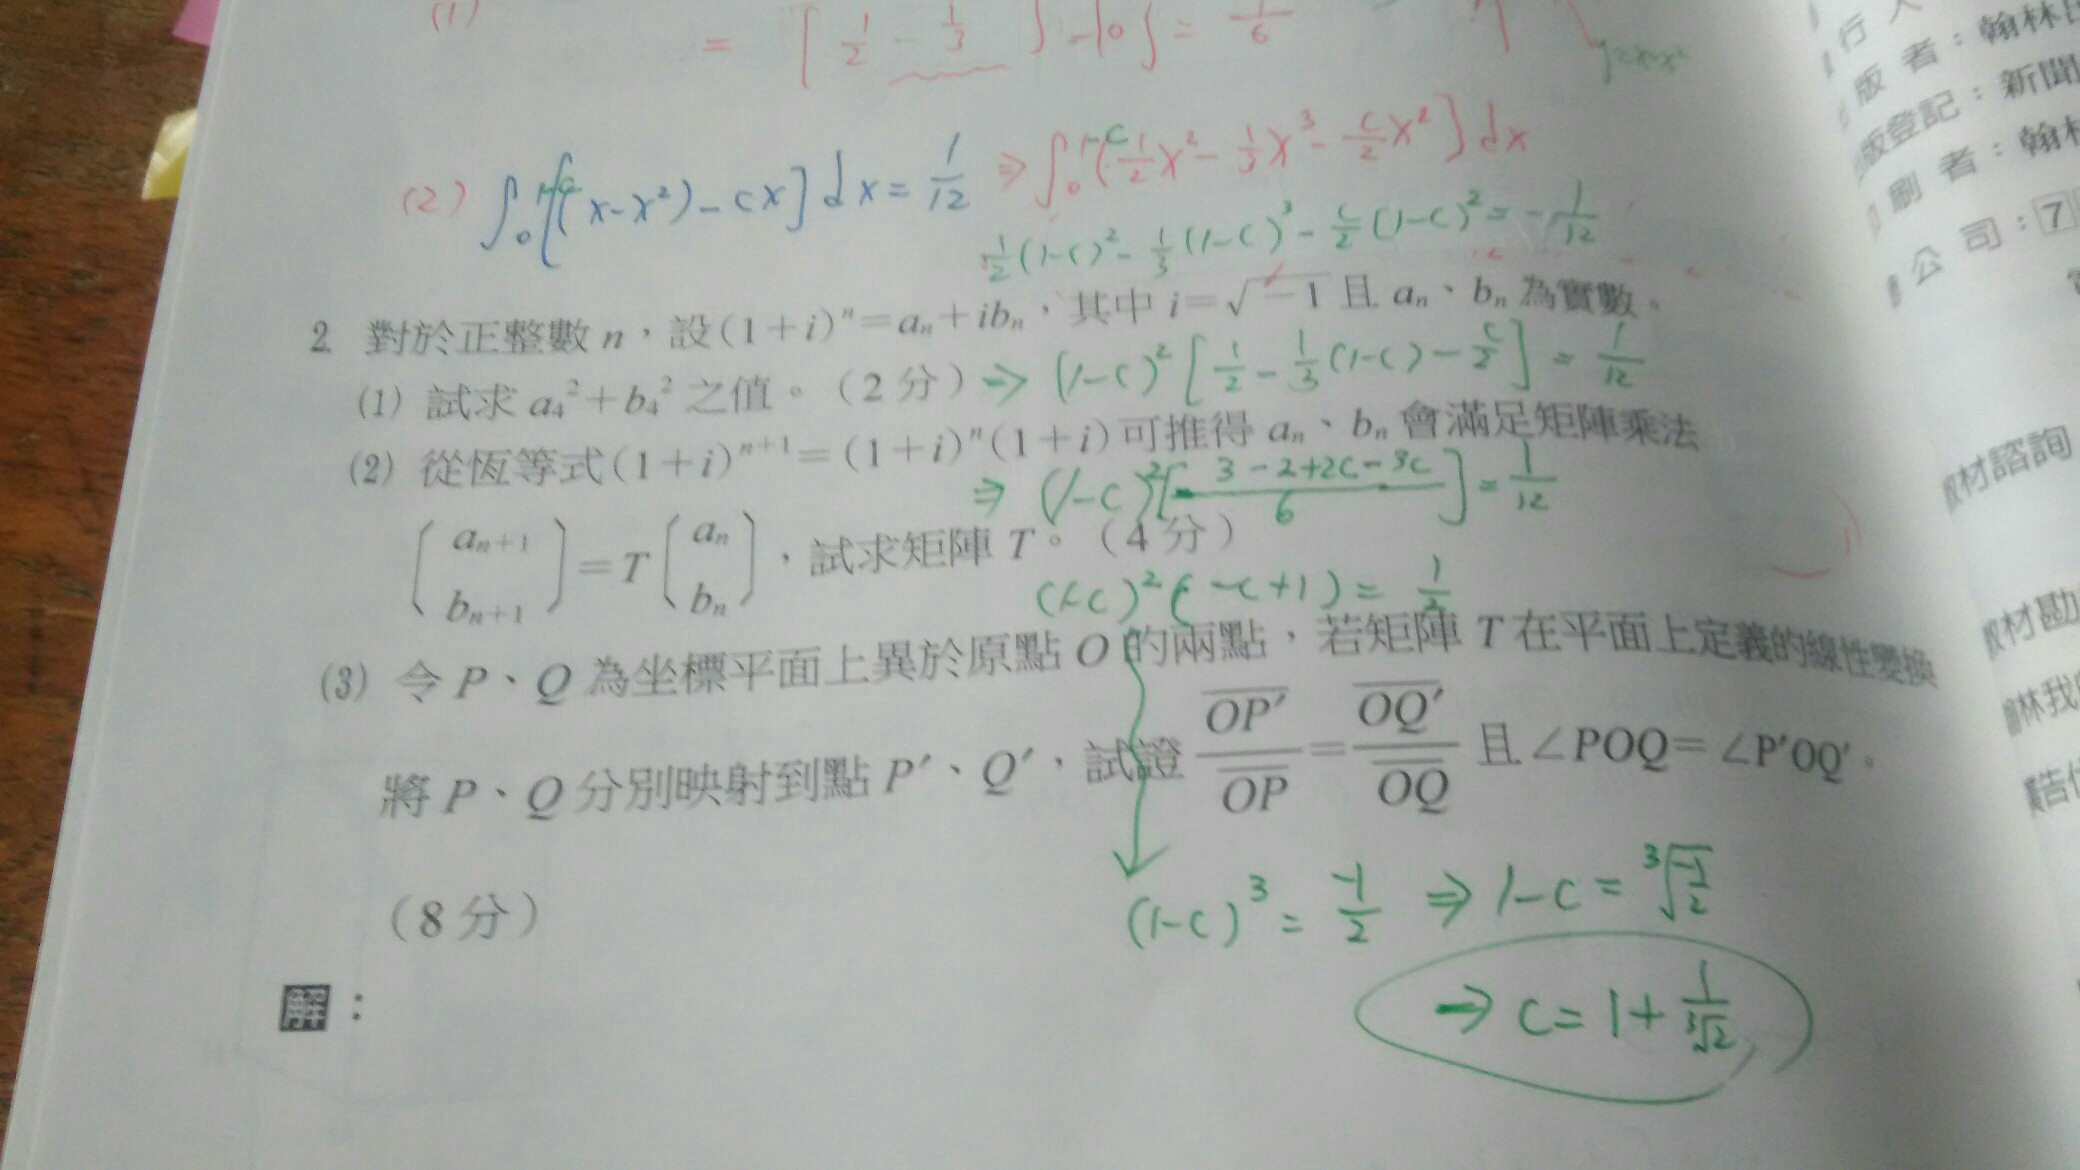 (1)
= [ 1/2 - 1/3 ] - [0] = 1/6
y=x-x²
(2) ∫₀^{1-c} [(x-x²)-cx] dx = 1/12 ⇒ ∫₀^{1-c} [1/2 x² - 1/3 x³ - c/2 x²] dx
1/2 (1-c)² - 1/3 (1-c)³ - c/2 (1-c)² = -1/12
2. 對於正整數 n，設(1+i)ⁿ=aₙ+ibₙ，其中 i=√-1 且 aₙ、bₙ 為實數。
⇒ (1-c)² [1/2 - 1/3 (1-c) - c/2] = 1/12
(1) 試求 a₄²+b₄² 之值。（2 分）
(2) 從恆等式(1+i)ⁿ⁺¹=(1+i)ⁿ(1+i)可推得 aₙ、bₙ 會滿足矩陣乘法
⇒ (1-c)² [ (3-2+2c-3c)/6 ] = 1/12
[aₙ₊₁ bₙ₊₁] = T [aₙ bₙ]，試求矩陣 T。（4 分）
(1-c)² (-c+1) = 1/2
(3) 令 P、Q 為坐標平面上異於原點 O 的兩點，若矩陣 T 在平面上定義的線性變換
將 P、Q 分別映射到點 P′、Q′，試證 OP′/OP = OQ′/OQ 且 ∠POQ=∠P′OQ′。
（8 分）
(1-c)³ = -1/2 ⇒ 1-c = ³√(-1/2)
⇒ c = 1 + 1/³√2
解：
行 人
版 者：翰林
版登記：新聞
刷 者：翰林
公 司：7
材諮詢
材勘
林我
告